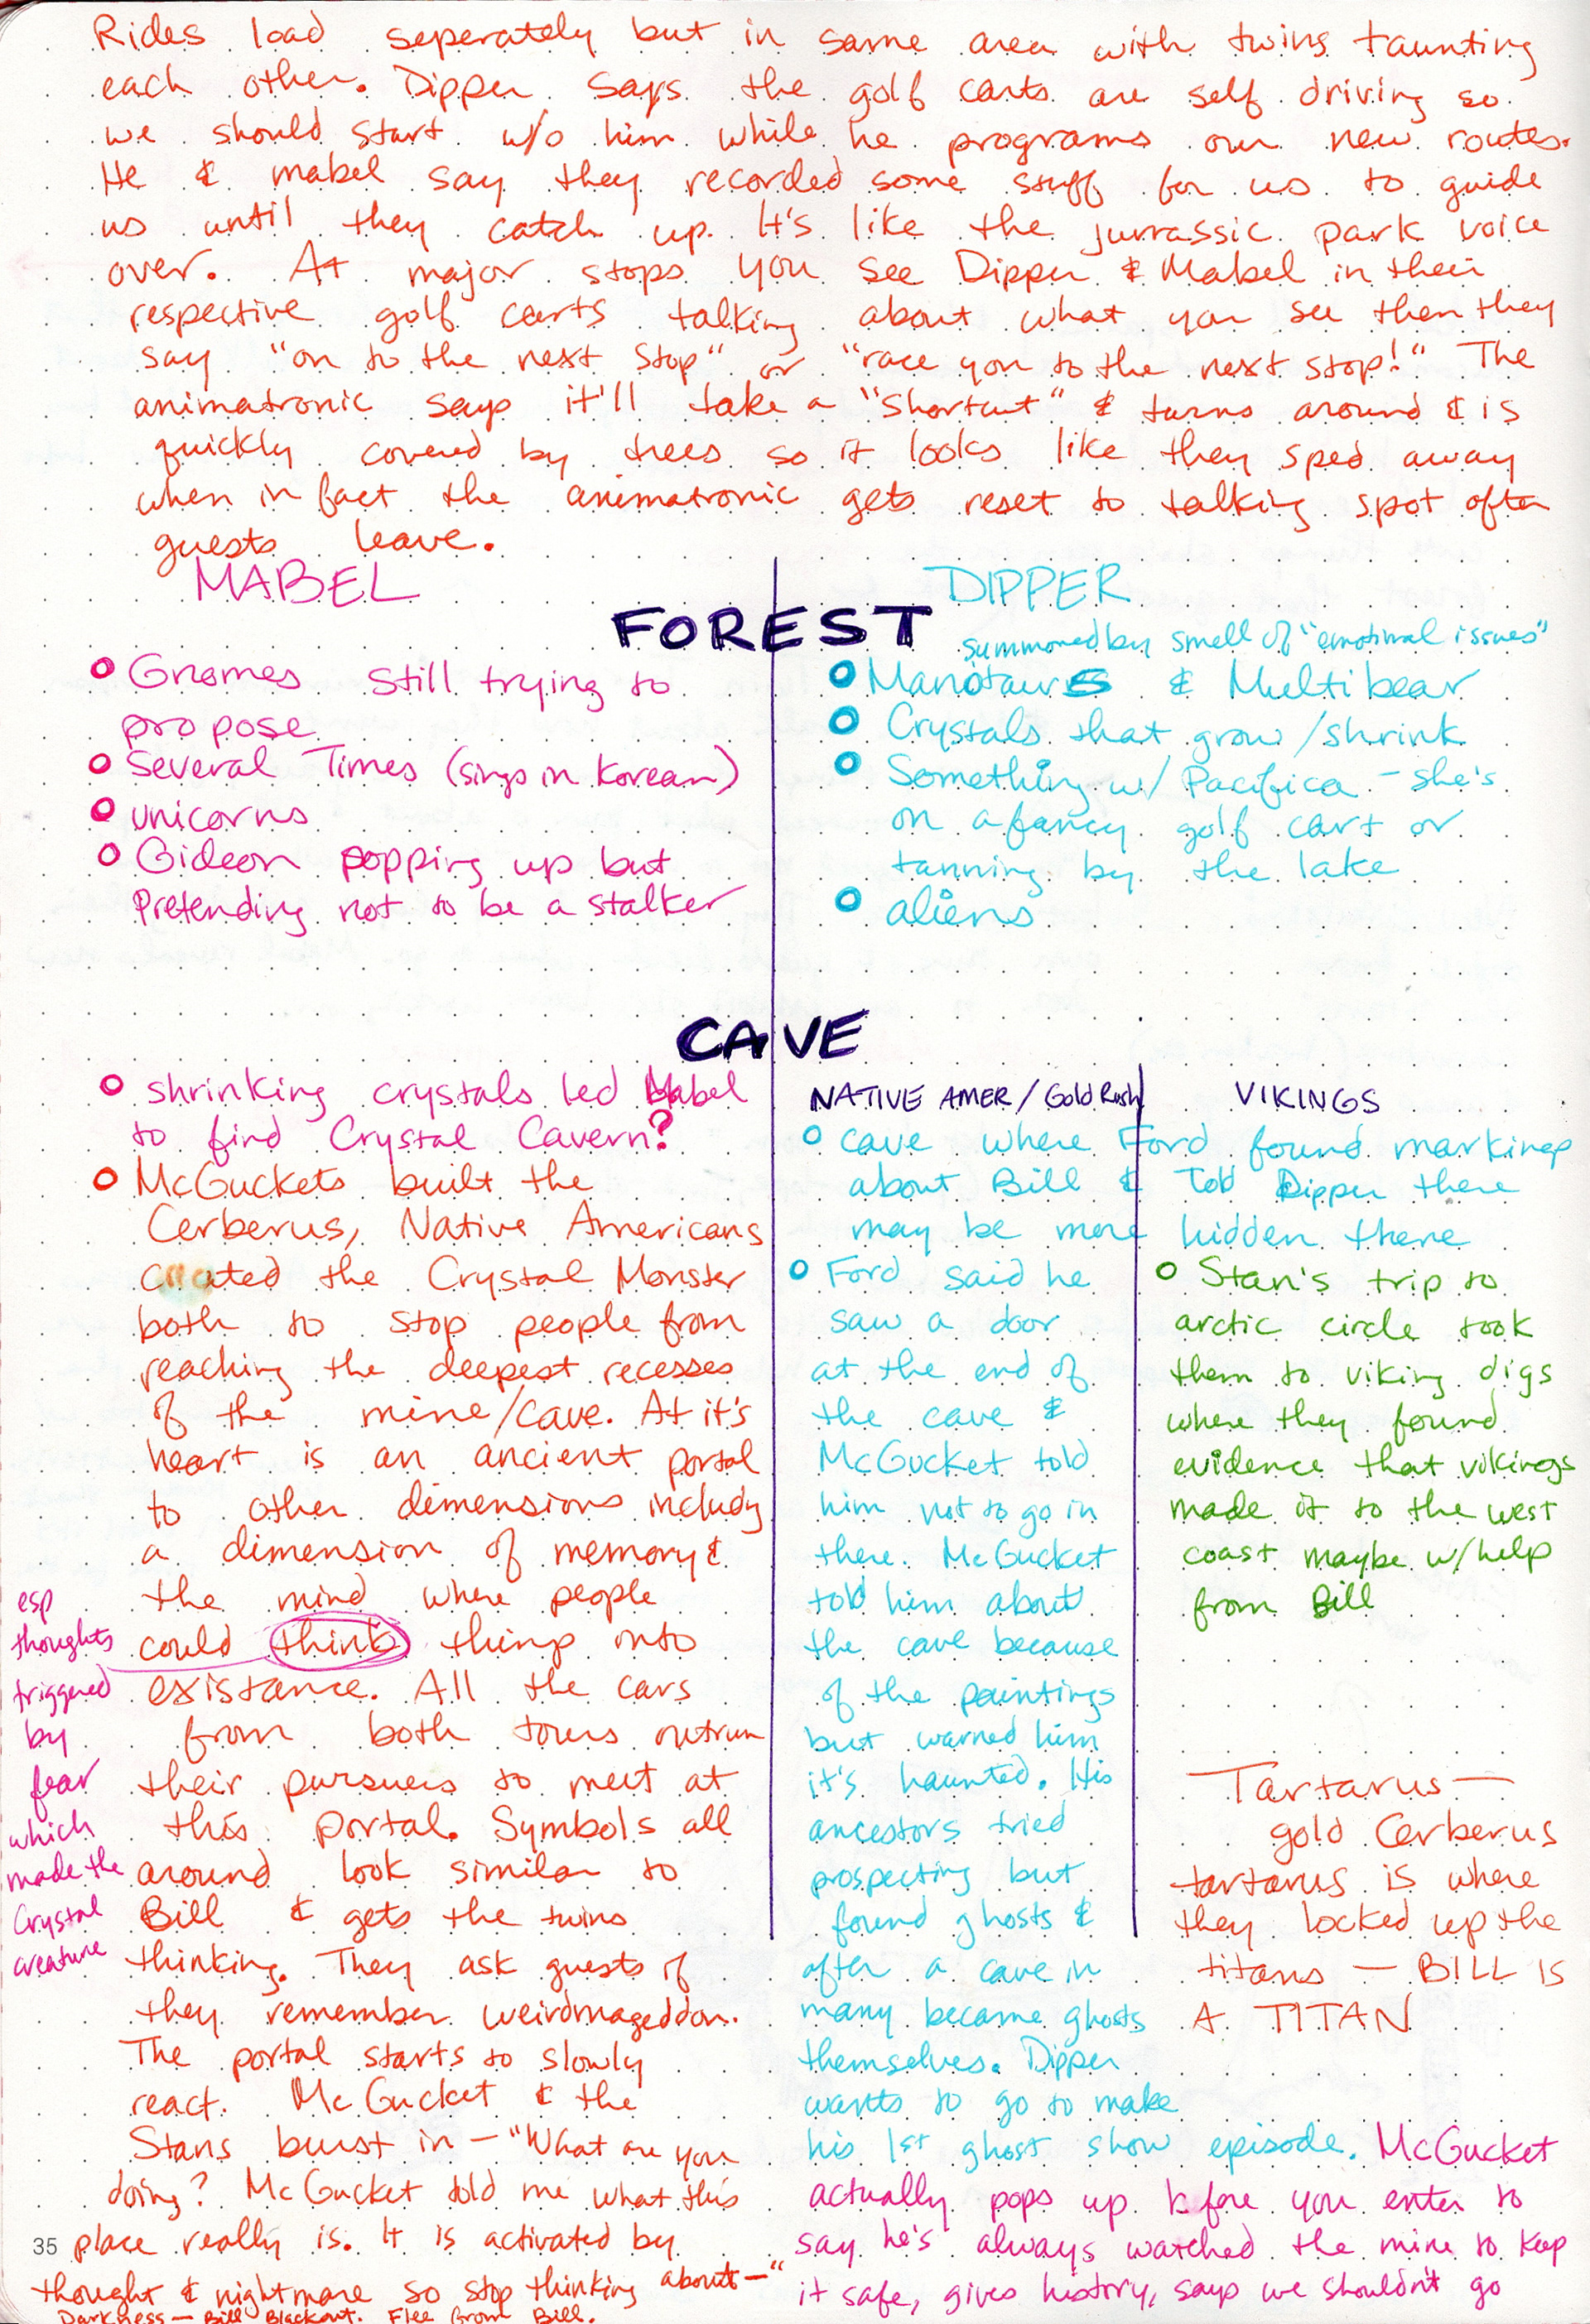 Rides load seperately but in same area with twins taunting
each other. Dipper says the golf carts are self driving so
we should start w/o him while he programs our new routes.
He & mabel say they recorded some stuff for us to guide
us until they catch up. It's like the jurrassic park voice
over. At major stops you see Dipper & Mabel in their
respective golf carts talking about what you see then they
say "on to the next stop" or "race you to the next stop!" The
animatronic says it'll take a "shortcut" & turns around & is
quickly covered by trees so it looks like they sped away
when in fact the animatronic gets reset to talking spot after
guests leave.
MABEL
DIPPER
FOREST
Gnomes still trying to
propose
Several Times (sings in Korean)
unicorns
Gideon popping up but
Pretending not to be a stalker
summoned by smell of "emotional issues"
Manotaurs & Multibear
Crystals that grow/shrink
Something w/ Pacifica - she's
on a fancy golf cart or
tanning by the lake
aliens
CAVE
shrinking crystals led Mabel
to find Crystal Cavern?
McGuckets built the
Cerberus, Native Americans
created the Crystal Monster
both to stop people from
reaching the deepest recesses
of the mine/cave. At it's
heart is an ancient portal
to other dimensions includg
a dimension of memory &
the mind where people
could think things into
existance. All the cars
from both tours outrun
their pursuers to meet at
this portal. Symbols all
around look similar to
Bill & gets the twins
thinking. They ask guests if
they remember weirdmageddon.
The portal starts to slowly
react. McGucket & the
Stans burst in - "What are you
doing? McGucket told me what this
place really is. It is activated by
thought & nightmare so stop thinking about—"
Darkness - Bill Blackout. Flee from Bill.
esp
thoughts
triggered
by
fear
which
made the
Crystal
creature
NATIVE AMER/Gold Rush
VIKINGS
cave where Ford found markings
about Bill & told Dipper there
may be more hidden there
Ford said he
saw a door
at the end of
the cave &
McGucket told
him not to go in
there. McGucket
told him about
the cave because
of the paintings
but warned him
it's haunted. His
ancestors tried
prospecting but
found ghosts &
after a cave in
many became ghosts
themselves. Dipper
wants to go to make
his 1st ghost show episode. McGucket
actually pops up before you enter to
say he's always watched the mine to keep
it safe, gives history, says we shouldn't go
Stan's trip to
arctic circle took
them to viking digs
where they found
evidence that vikings
made it to the west
coast maybe w/help
from Bill
Tartarus—
gold Cerberus
tartarus is where
they locked up the
titans - BILL IS
A TITAN
35